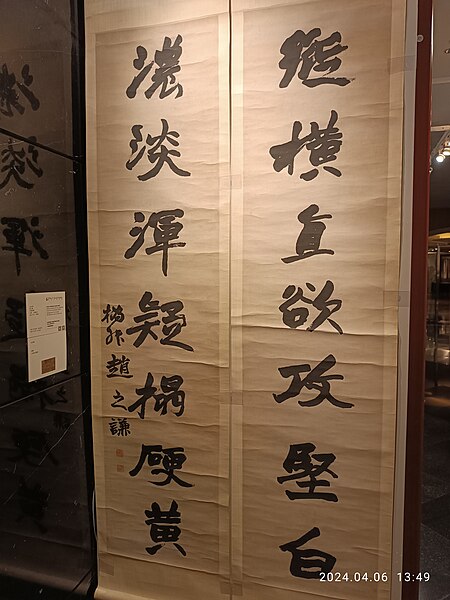 縱橫直欲攻堅白
濃淡渾疑搨硬黃
撝叔趙之謙
2024.04.06 13:49